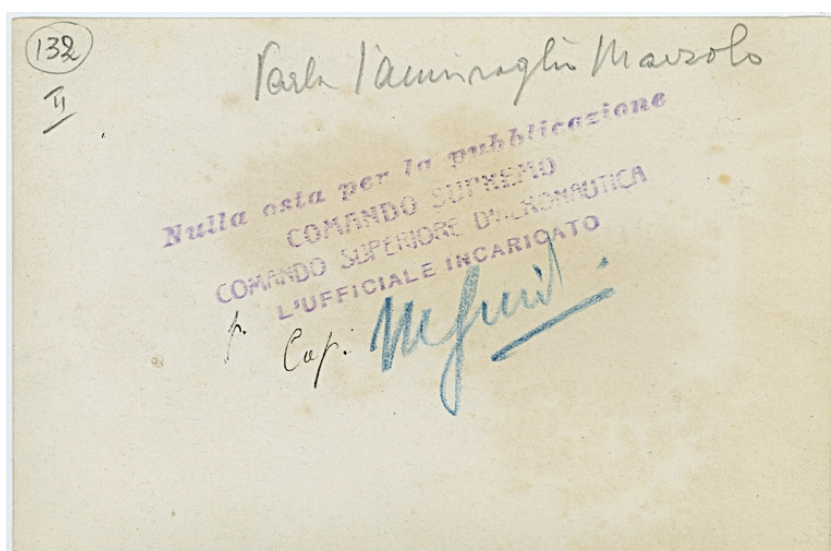 132
II
Parla l'ammiraglio Marzolo
Nulla osta per la pubblicazione
COMANDO SUPREMO
COMANDO SUPERIORE D'AERONAUTICA
L'UFFICIALE INCARICATO
p. Cap.